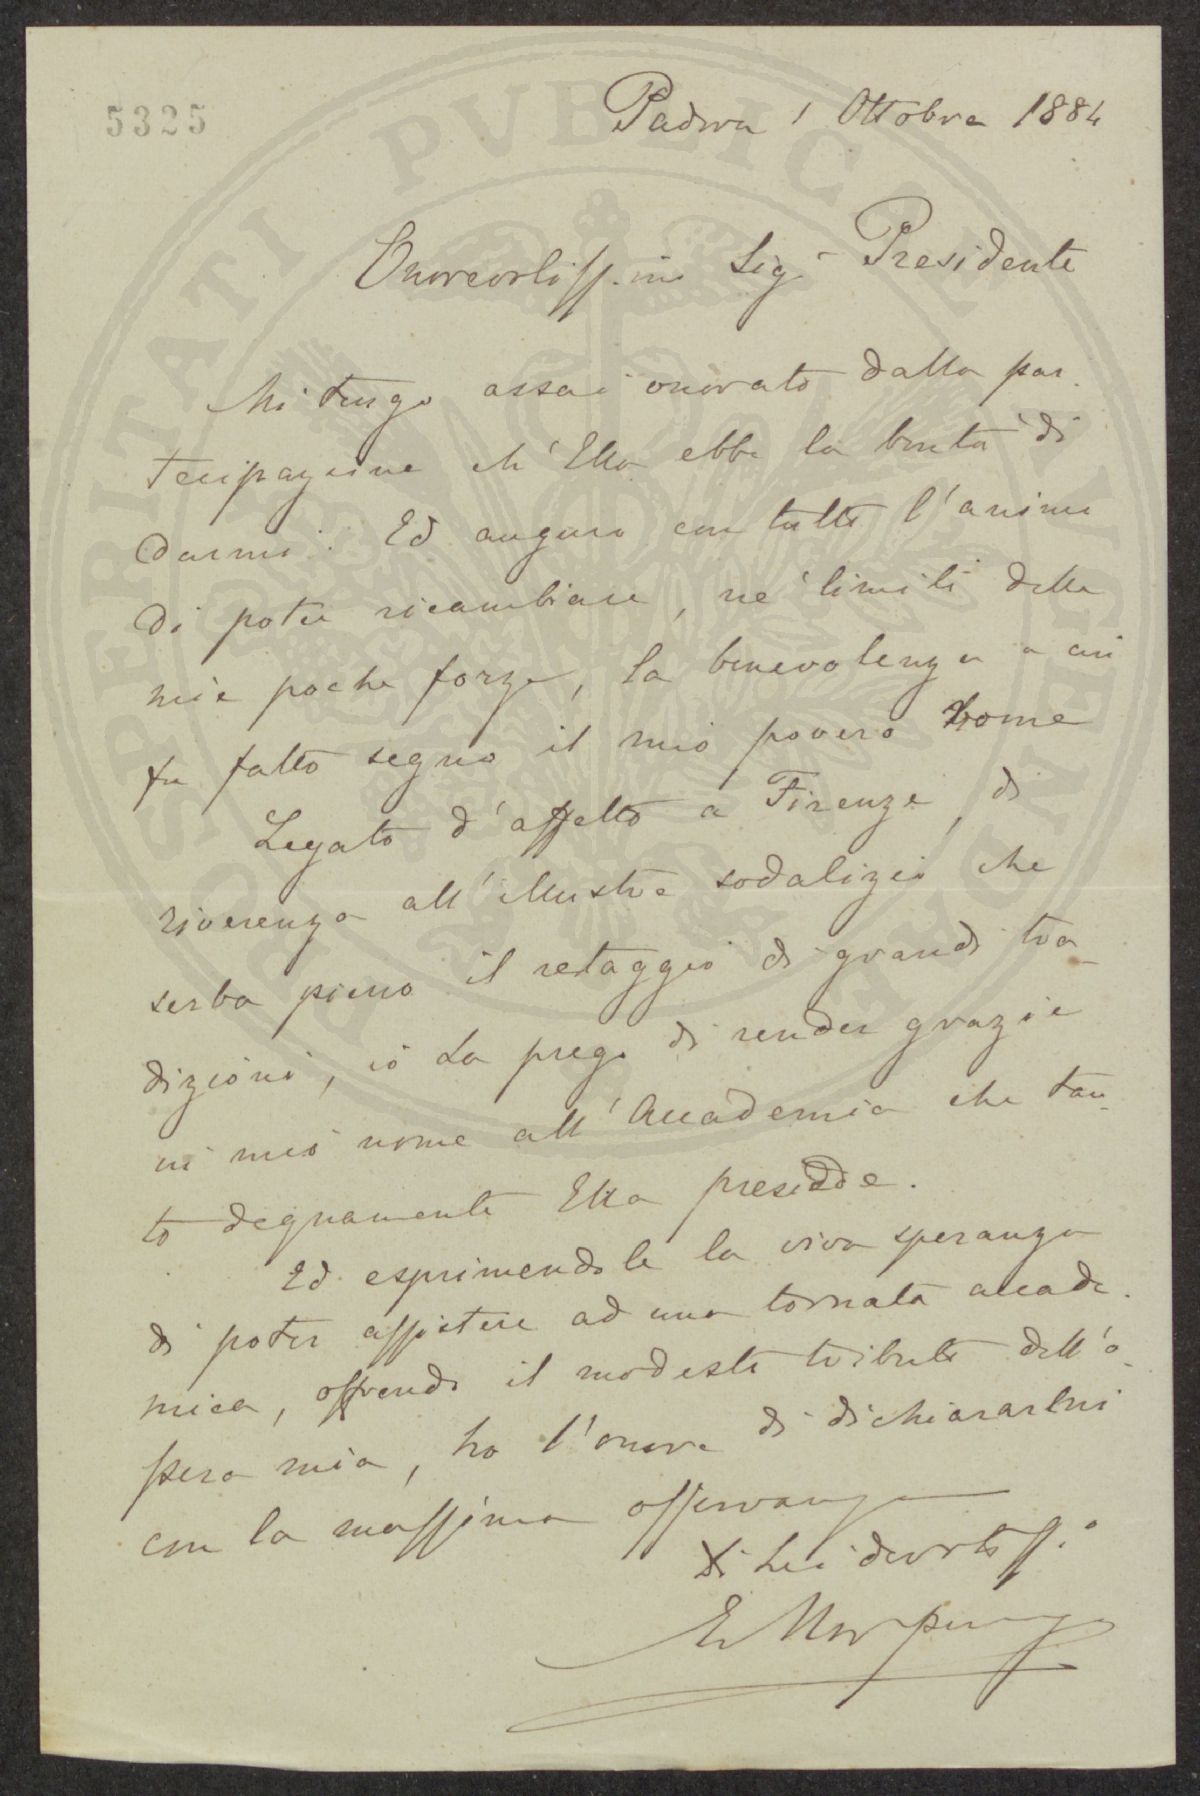 5325
Padova 1 Ottobre 1884
Onorevoliss.mo Sig.r Presidente
Mi tengo assai onorato dalla par-
tecipazione ch'Ella ebbe la bontà di
darmi. Ed auguro con tutto l'animo
di poter ricambiare, ne' limiti delle
mie poche forze, la benevolenza a cui
fu fatto segno il mio povero nome
Legato d'affetto a Firenze, di
riverenza all'illustre sodalizio che
serba pieno il retaggio di grandi tra-
dizioni, io La prego di render grazie
in mio nome all'Accademia che tan-
to degnamente Ella presiede.
Ed esprimendole la viva speranza
di poter assistere ad una tornata accade-
mica, offrendo il modesto tributo dell'o-
pera mia, ho l'onore di dichiararmi
con la massima osservanza
Di Lei devotiss.o
E Morpurgo
PROSPERITATI PVBLICAE AVGENDAE